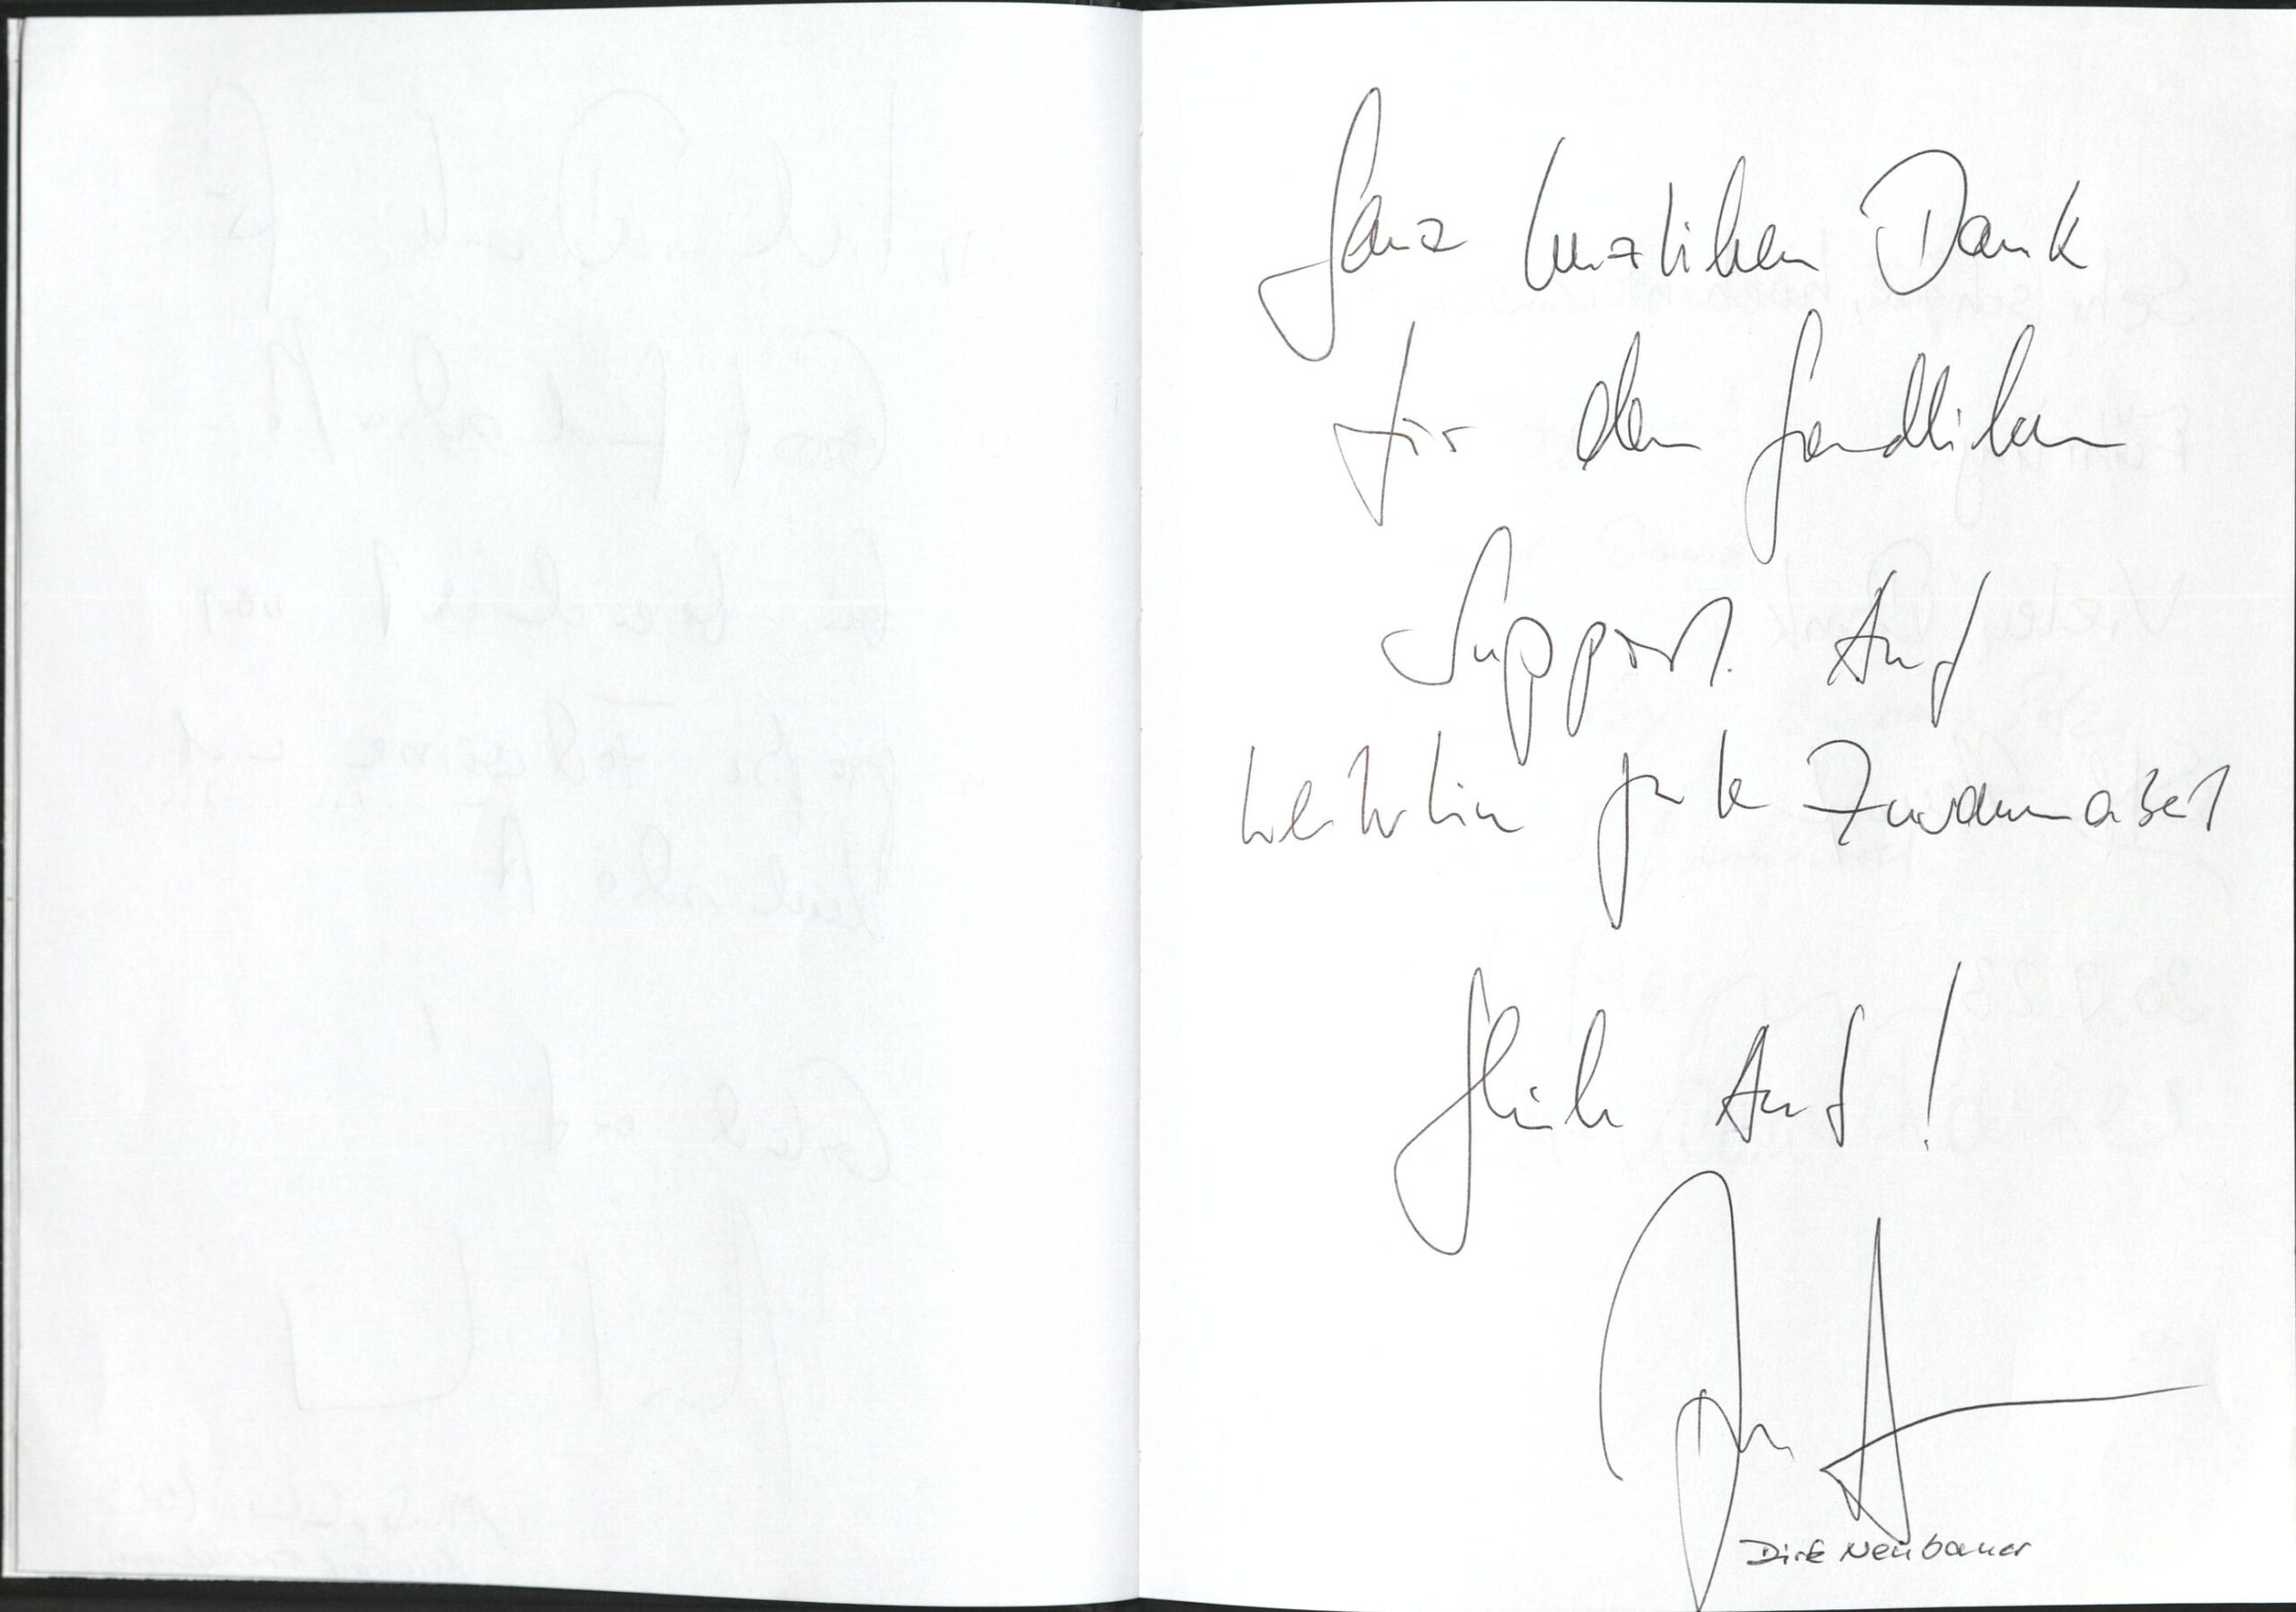 Ganz herzlichen Dank
für den freundlichen
Support. Auf
weiterhin gute Zusammenarbeit
Glück Auf!
Dirk Neubauer